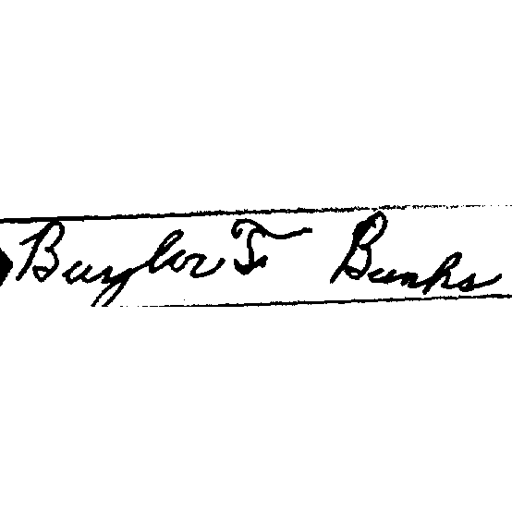 Baylor T Banks